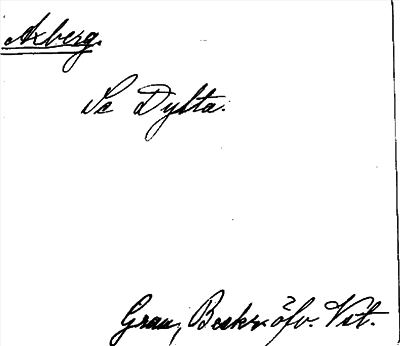 Axberg.
Se Dylta.
Grau, Beskr. öfv. Vst.